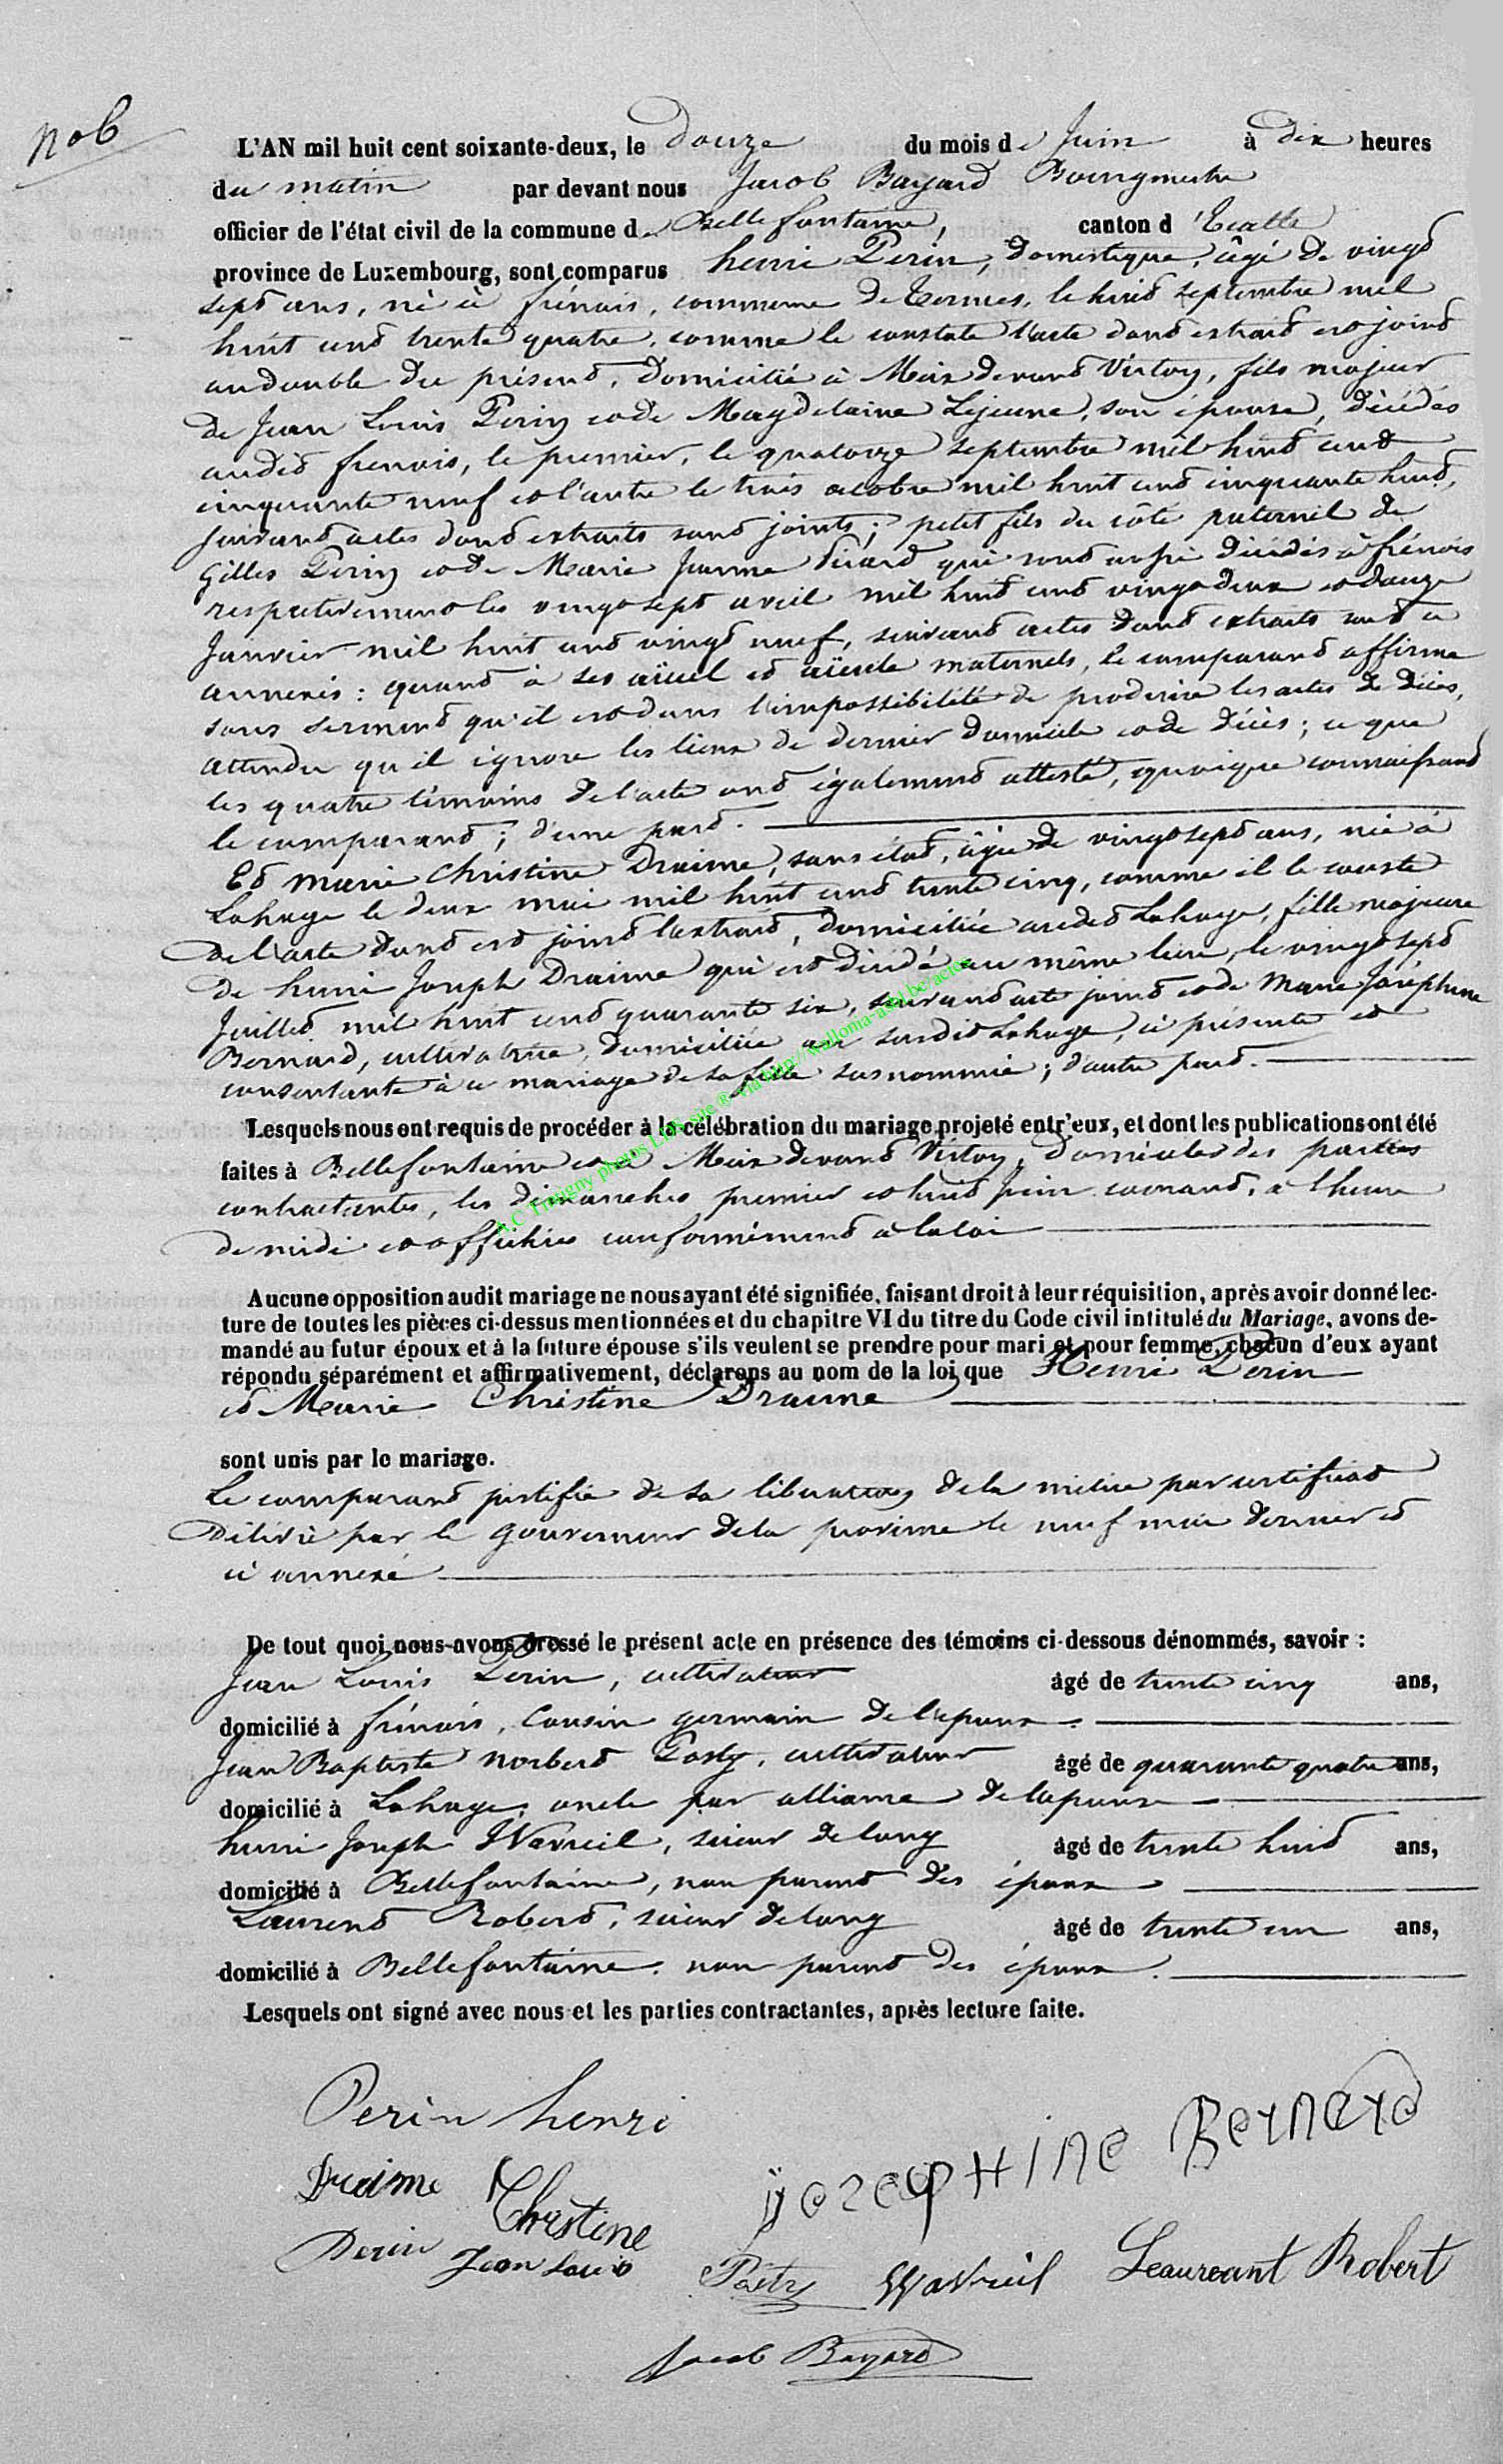 no 6
L'AN mil huit cent soixante-deux, le douze du mois de Juin à dix heures
du matin par devant nous Jacob Bayard Bourgmestre
officier de l'état civil de la commune de Bellefontaine, canton d'Etalle
province de Luxembourg, sont comparus henri Perin, domestique, âgé de vingt
sept ans, né à frénois, commune de Termes, le huit septembre mil
huit cent trente quatre, comme le constate l'acte dont extrait est joint
au double du présent, domicilié à Meix devant Virton, fils majeur
de Jean Louis Perin et de Magdelaine Lejeune, son épouse, décédés
audit frenois, le premier, le quatorze septembre mil huit cent
cinquante neuf et l'autre le trois octobre mil huit cent cinquante huit,
suivant actes dont extraits sont joints; petit fils du côté paternel de
Gilles Perin et de Marie Jeanne qui sont aussi décédés à frénois
respectivement les vingt sept avril mil huit cent vingt deux et douze
Janvier mil huit cent vingt neuf, suivant actes dont extraits sont ci
annexés: quant à ses aïeul et aïeule maternels, le comparant affirme
sous serment qu'il est dans l'impossibilité de produire les actes de décès,
attendu qu'il ignore les lieux de dernier domicile et de décès; ce que
les quatre témoins de l'acte ont également attesté, quoique connaissant
le comparant; d'une part.
Et marie Christine Draime, sans état, âgée de vingt sept ans, née à
Lahage le deux mai mil huit cent trente cinq, comme il le conste
de l'acte dont est joint l'extrait, domiciliée audit Lahage, fille majeure
de henri Joseph Draime qui est décédé au même lieu, le vingt sept
Juillet mil huit cent quarante six, suivant acte joint et de Marie Joséphine
Bernard, cultivatrice, domiciliée au susdit Lahage, ci présente et
consentante à ce mariage de sa fille susnommée; d'autre part.
Lesquels nous ont requis de procéder à la célébration du mariage projeté entr'eux, et dont les publications ont été
faites à Bellefontaine et à Meix devant Virton, domiciles des parties
contractantes, les dimanches premier et huit Juin courant, à l'heure
de midi et affichées conformément à la loi
Aucune opposition audit mariage ne nous ayant été signifiée, faisant droit à leur réquisition, après avoir donné lec-
ture de toutes les pièces ci-dessus mentionnées et du chapitre VI du titre du Code civil intitulé du Mariage, avons de-
mandé au futur époux et à la future épouse s'ils veulent se prendre pour mari et pour femme, chacun d'eux ayant
répondu séparément et affirmativement, déclarons au nom de la loi que Henri Perin
et Marie Christine Draime
sont unis par le mariage.
Le comparant justifie de sa libération de la milice par certificat
délivré par le gouverneur de la province le neuf mai dernier et
ci annexé
De tout quoi nous avons dressé le présent acte en présence des témoins ci-dessous dénommés, savoir :
Jean Louis Perin, cultivateur âgé de trente cinq ans,
domicilié à frénois, Cousin germain de l'époux.
Jean Baptiste norbert Pasty, cultivateur âgé de quarante quatre ans,
domicilié à Lahage, oncle par alliance de l'épouse
henri Joseph Wavreil, scieur de long âgé de trente huit ans,
domicilié à Bellefontaine, non parent des époux
Laurent Robert, scieur de long âgé de trente un ans,
domicilié à Bellefontaine, non parent des époux.
Lesquels ont signé avec nous et les parties contractantes, après lecture faite.
Perin henri
Draime Christine
yozephine Bernard
Perin Jean Louis
Pasty Wavreil Leaureant Robert
Jacob Bayard
A.C Tintigny photos LDS site ® via http://wallonia-asbl.be/actes